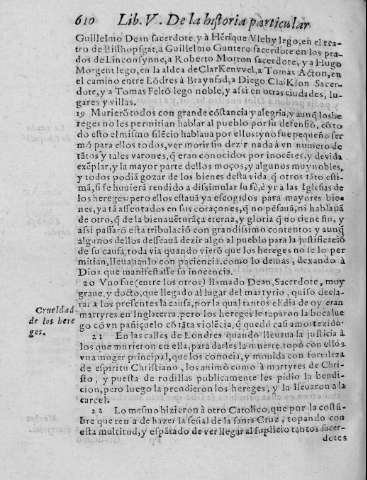 610 Lib. V. De la historia particular
Guillelmo Dean sacerdote, y à Hērique Vlehy lego, en el tea
tro de Bilshopsgat, à Guillelmo Guntero sacerdote en los pra
dos de Linconsynne, a Roberto Morton sacerdote, y a Hugo
Morgent lego, en la aldea de ClarKenvvel, a Tomas Acton, en
el camino entre Lōdres à Braynfsd, a Diego ClaiKson Sacer-
dote, y a Tomas Feltō lego noble, y assi en otras ciudades, lu-
gares y villas.
19 Murierō todos con grande cōstancia y alegria, y aunq̃ los he
reges no les permitian hablar al pueblo por su defensiō, cōto
do esto el mismo silēcio hablaua por ellos: y no fue pequeño ser
mō para ellos todos, ver morir sin dezir nada à vn numero de
tātos y tales varones, q̃ eran conocidos por inocētes, y de vida
exēplar, y la mayor parte dellos moços, y algunos muy nobles,
y todos podiā gozar de los bienes desta vida q̃ otros tāto esti-
mā, si se huuierā rendido a dissimular su fè, è yr a las Iglesias de
los hereges: pero ellos estauā ya escogidos para mayores bie
nes, ya tā assentados en sus coraçones, q̃ no pēsauā, ni hablauā
de otro, q̃ de la bienauēturāça eterna, y gloria q̃ no tiene fin, y
assi passarō esta tribulaciō con grandissimo contentos y aunq̃
algunos dellos desseauā dezir algo al pueblo para la justificaciō
de su causa, toda via quando vierō que los hereges no se lo per
mitian, lleuauanlo con paciencia como lo demas, dexando à
Dios que manifestasse su inocencia.
20 Vno fue (entre los otros) llamado Dean, Sacerdote, muy
graue, y docto, que llegado al lugar del martyrio, quiso decla-
rar a los presentes la causa, por la qual tantos el dia de oy eran
martyres en Inglaterra, pero los hereges le taparon la boca lue
go cō vn pañiçuelo cō tāta violēcia, q̃ quedò casi amortezido.
Crueldad
de los here
ges.
21 En las calles de Londres quando lleuaua la justicia à
los que murieron en ella, para darles la muerte, topò con ellos
vna moger principal, que los conocia, y mouida con fortaleza
de espiritu Christiano, los animò como à martyres de Chris-
to, y puesta de rodillas publicamente les pidio la bendi-
cion, pero luego la prendieron los hereges, y la lleuaron a la
carcel.
22 Lo mesmo hizieron à otro Catolico, que por la costū-
bre que tenia de hazer la señal de la santa Cruz, topando con
esta multitud, y espātado de ver llegar al suplicio tantos sacer-
dotes